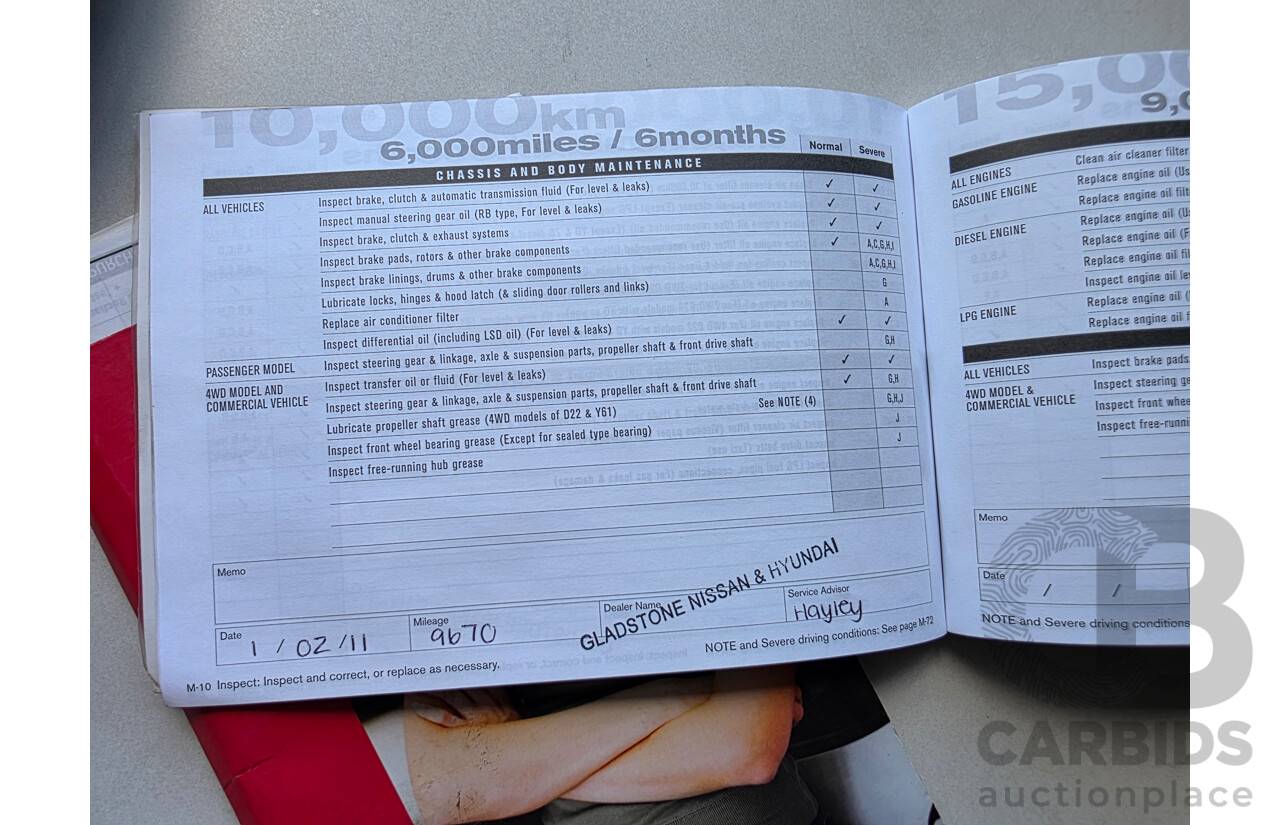 10,000km
6,000miles / 6months
Normal Severe
CHASSIS AND BODY MAINTENANCE
ALL VEHICLES Inspect brake, clutch & automatic transmission fluid (For level & leaks) ✓ ✓
Inspect manual steering gear oil (RB type, For level & leaks) ✓ ✓
Inspect brake, clutch & exhaust systems ✓ ✓
Inspect brake pads, rotors & other brake components ✓ A,C,G,H,I
Inspect brake linings, drums & other brake components A,C,G,H,I
Lubricate locks, hinges & hood latch (& sliding door rollers and links) G
Replace air conditioner filter A
Inspect differential oil (including LSD oil) (For level & leaks) ✓ ✓
PASSENGER MODEL Inspect steering gear & linkage, axle & suspension parts, propeller shaft & front drive shaft G,H
4WD MODEL AND COMMERCIAL VEHICLE Inspect transfer oil or fluid (For level & leaks) ✓ ✓
Inspect steering gear & linkage, axle & suspension parts, propeller shaft & front drive shaft ✓ G,H
Lubricate propeller shaft grease (4WD models of D22 & Y61) See NOTE (4) G,H,J
Inspect front wheel bearing grease (Except for sealed type bearing) J
Inspect free-running hub grease J
Memo
Date 1 / 02 / 11
Mileage 9670
Dealer Name GLADSTONE NISSAN & HYUNDAI
Service Advisor Hayley
M-10 Inspect: Inspect and correct, or replace as necessary.
NOTE and Severe driving conditions: See page M-72
15,0
9,0
ALL ENGINES Clean air cleaner filter
GASOLINE ENGINE Replace engine oil (Us
Replace engine oil filt
DIESEL ENGINE Replace engine oil (Us
Replace engine oil (F
Replace engine oil fil
Inspect engine oil le
LPG ENGINE Replace engine oil (
Replace engine oil f
ALL VEHICLES Inspect brake pads,
4WD MODEL & COMMERCIAL VEHICLE Inspect steering ge
Inspect front whee
Inspect free-runni
Memo
Date / /
NOTE and Severe driving conditions
CB
CARBIDS
auctionplace